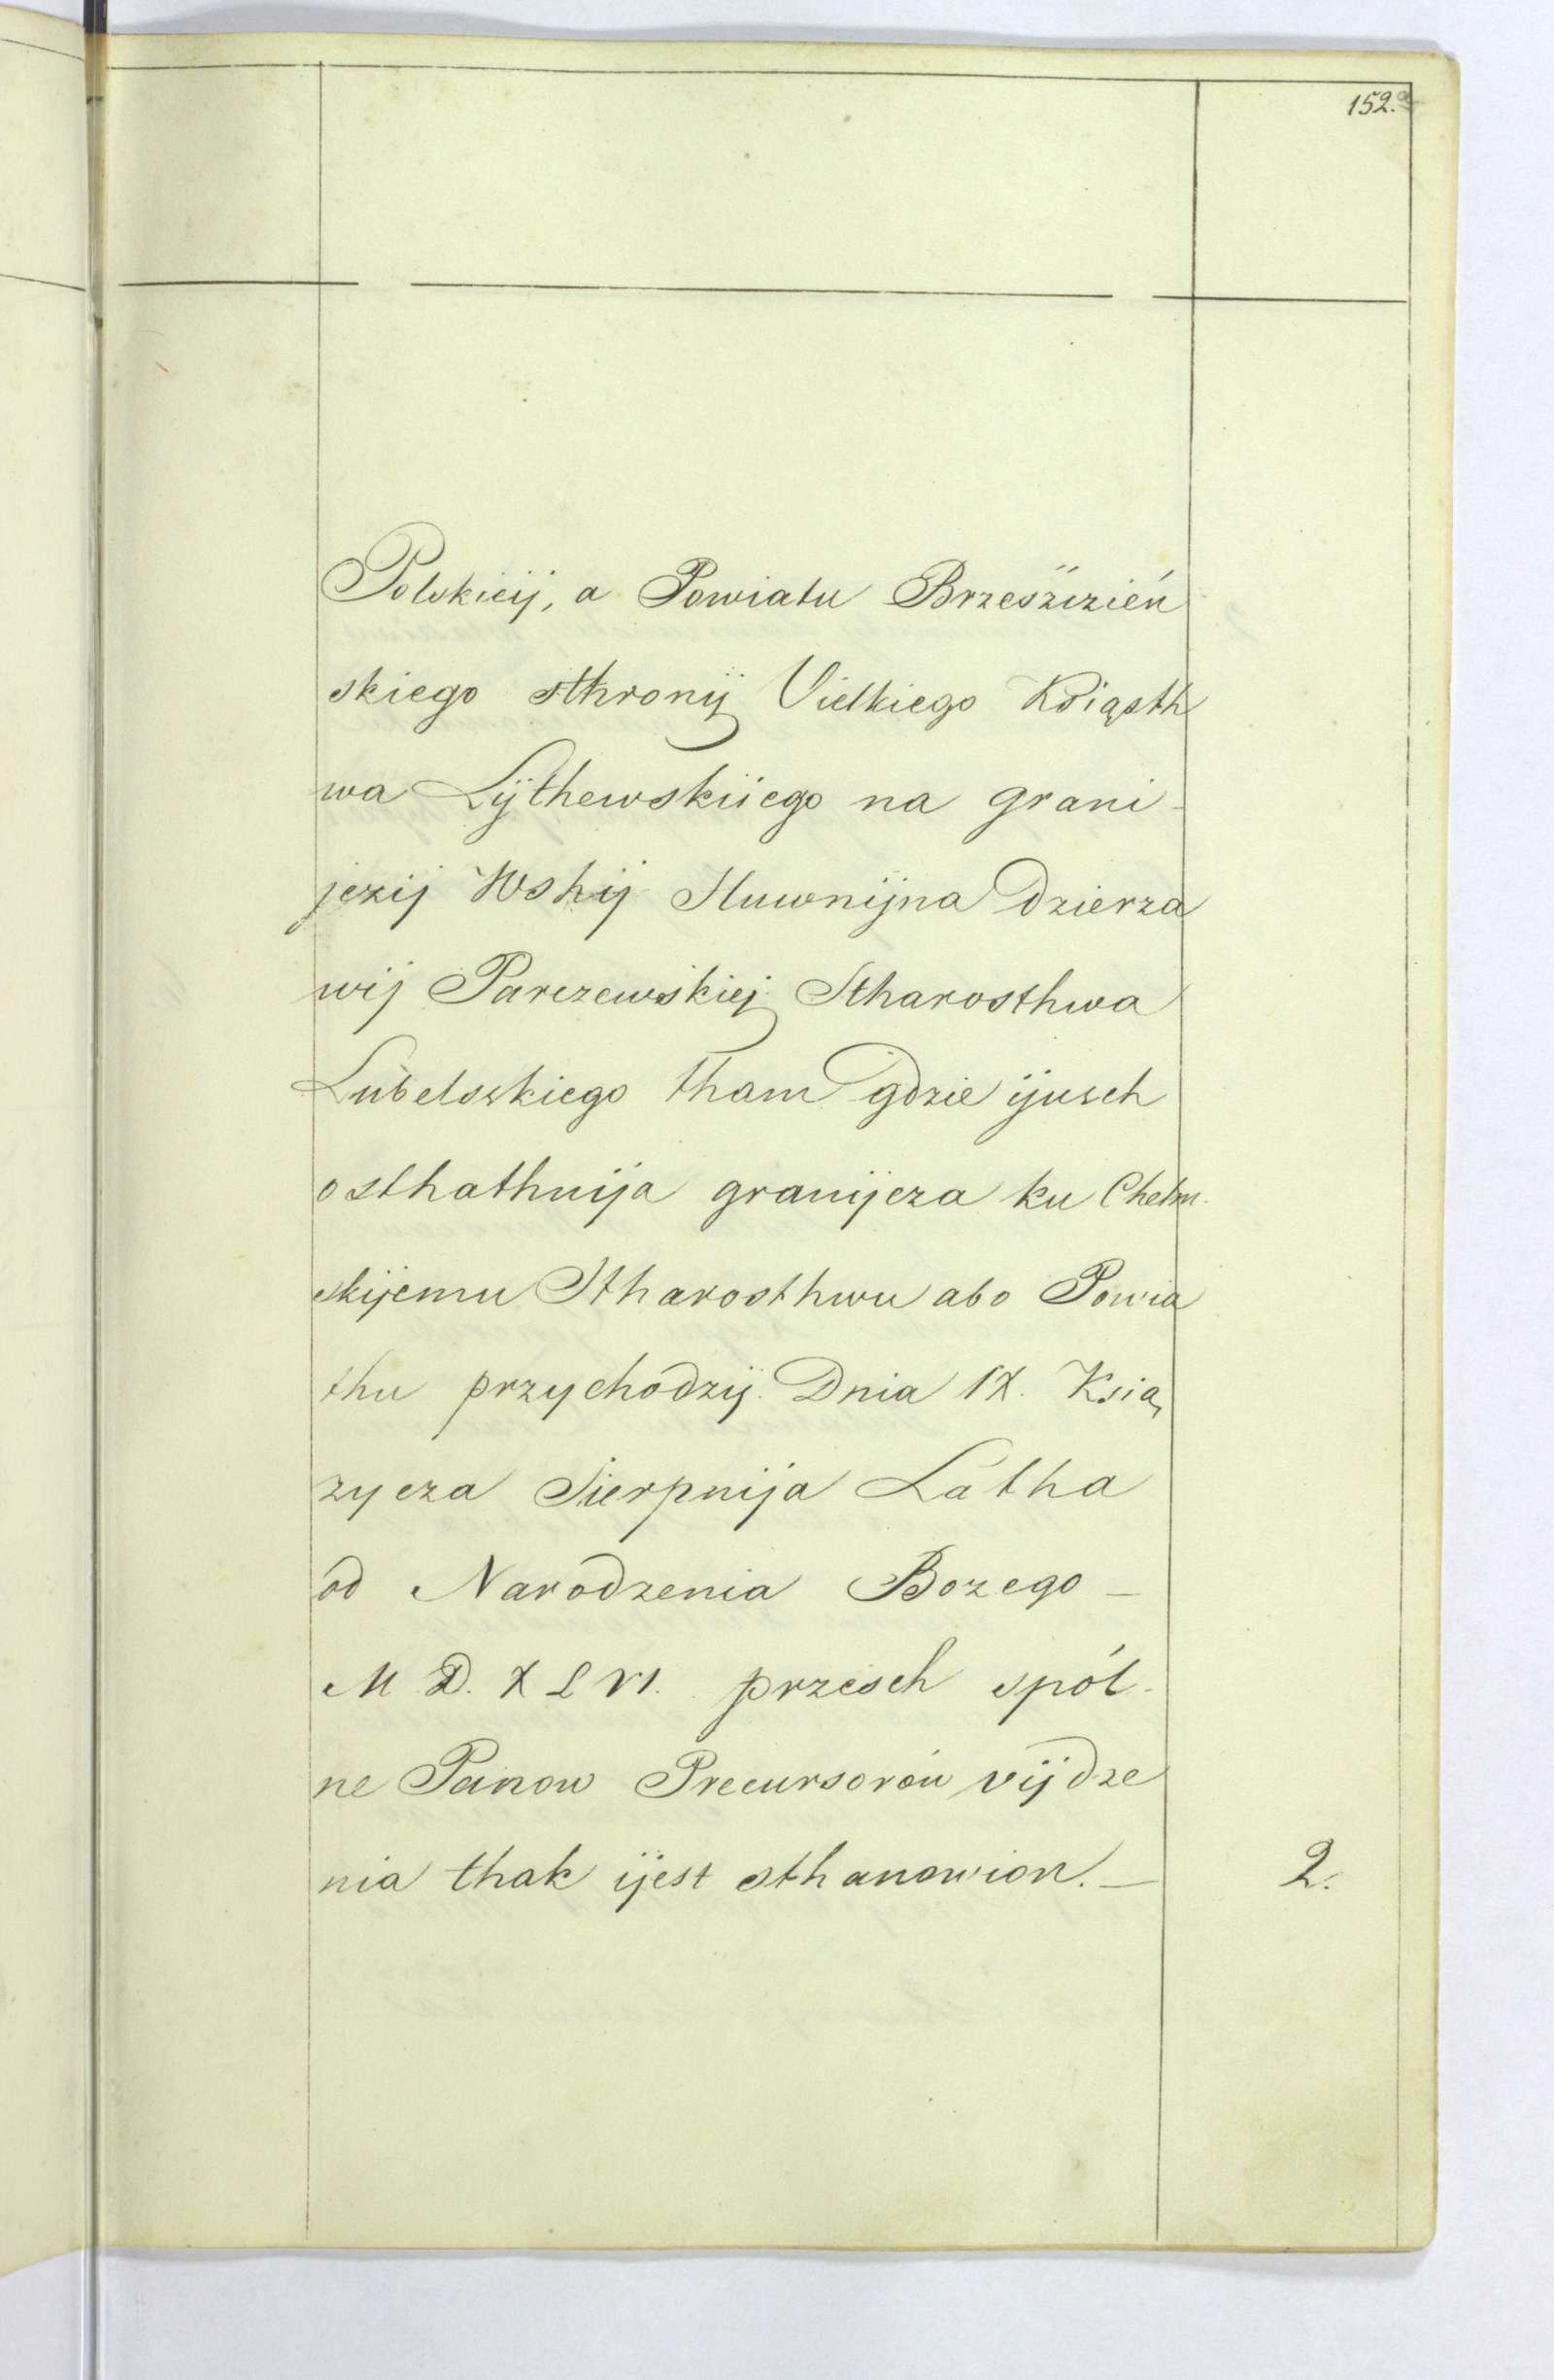 152.
Polskieij, a Powiatu Brzesźizień
skiego sthronÿ Vielkiego Ksiąsth
wa Lÿthewskiiego na grani-
jczij Wshij Huwnijna Dzierza
wij Parczewskiej Stharosthwa
Lubelsskiego tham gdzie ÿusch
osthathnija granijcza ku Chelm-
skijemu Stharosthwu abo Powia
thu przychodzij. Dnia IX. Ksią
zycza Sierpnija Latha
od Narodzenia Bozego —
M D. X L VI. przesch spól-
ne Panow Precursorów vijdze
nia thak ijest sthanowion. — 2.